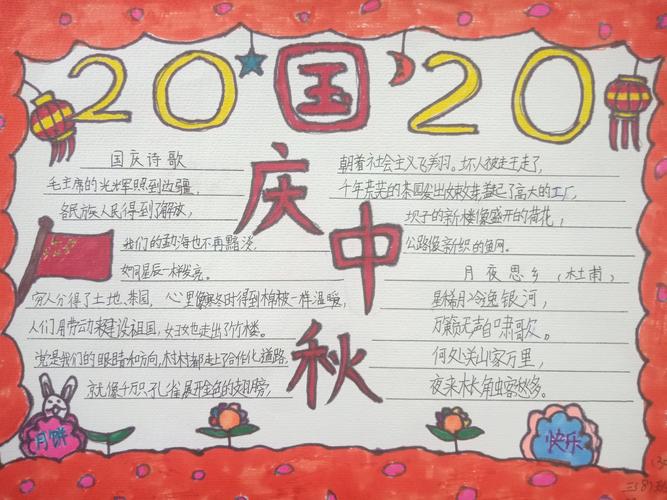 20国20
庆
中
秋
国庆诗歌
毛主席的光辉照到边疆,
各民族人民得到了解放,
我们的勐海也不再黯淡,
如同星辰一样发亮。
穷人分得了土地、茶园, 心里像寒冬时得到棉被一样温暖,
人们用劳动来建设祖国,妇女也走出了竹楼。
党是我们的眼睛和方向,村村都走上了合作化道路,
就像千万只孔雀展开金色的翅膀,
朝着社会主义飞翔。坏人被赶走了,
千年荒芜的茶园发出嫩枝,盖起了高大的工厂,
坝子的新楼像盛开的荷花,
公路像新织的鱼网。
月夜思乡 (杜甫)
星稀月冷逸银河,
万籁无声自啸歌。
何处关山家万里,
夜来枨触客愁多。
月饼
快乐